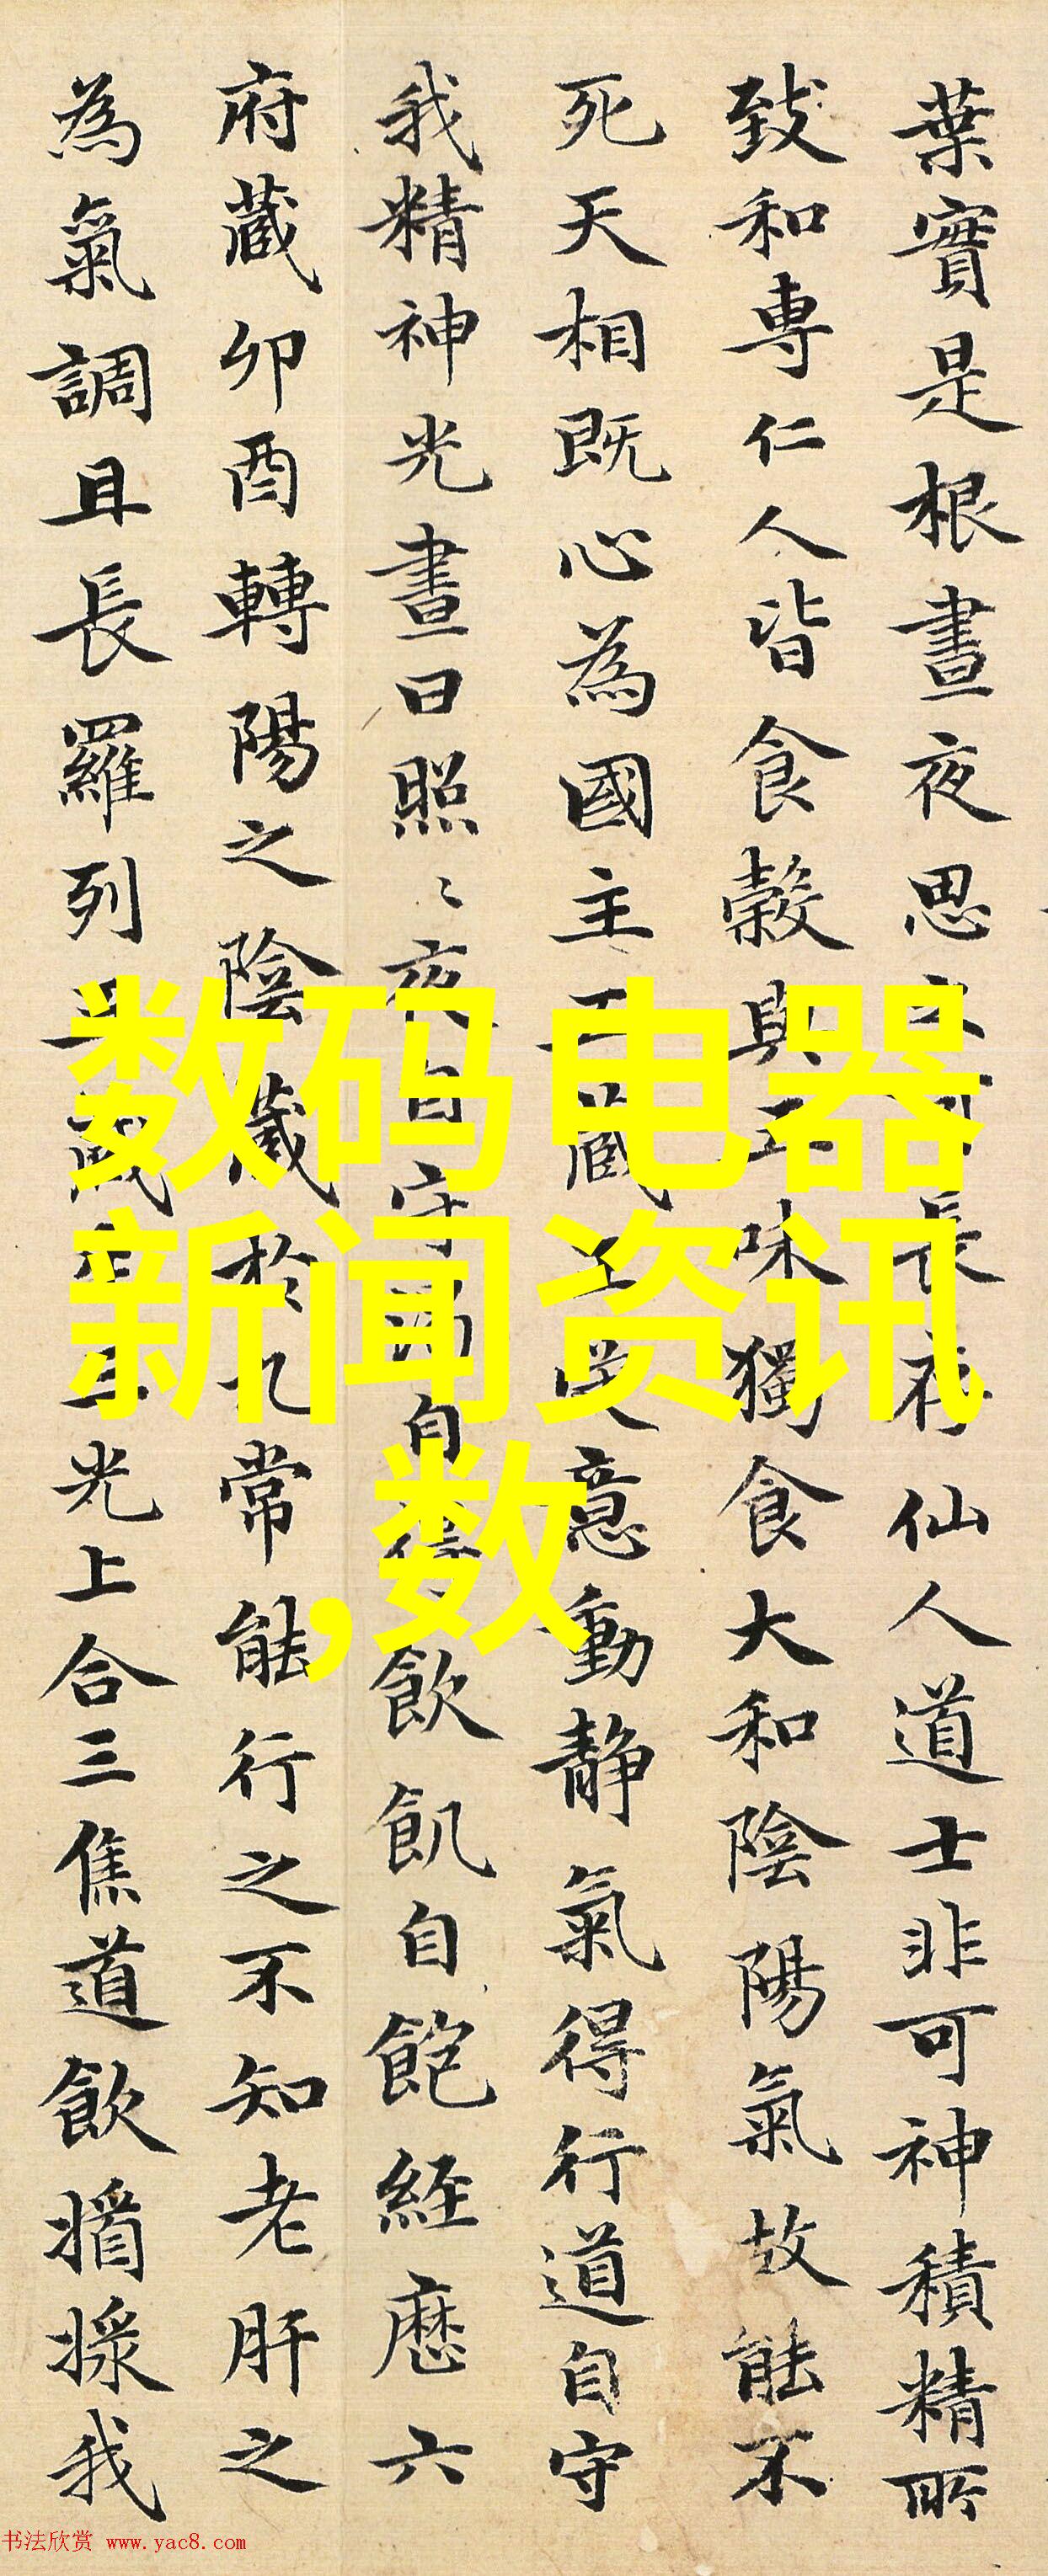 葉實是根晝夜思長存仙人道士非可神積精所
致和專仁人皆食穀與五味獨食大和陰陽氣故能不
死天相既心為國主五藏王受意動静氣得行道自守
我精神光晝日照〻夜自守渴自得飲飢自飽經歷六
府藏卯酉轉陽之陰藏於九常能行之不知老肝之
為氣調且長羅列五藏主三光上合三焦道飲撗採我
数码电器
新闻资讯
,数
书法欣赏 www.yac8.com